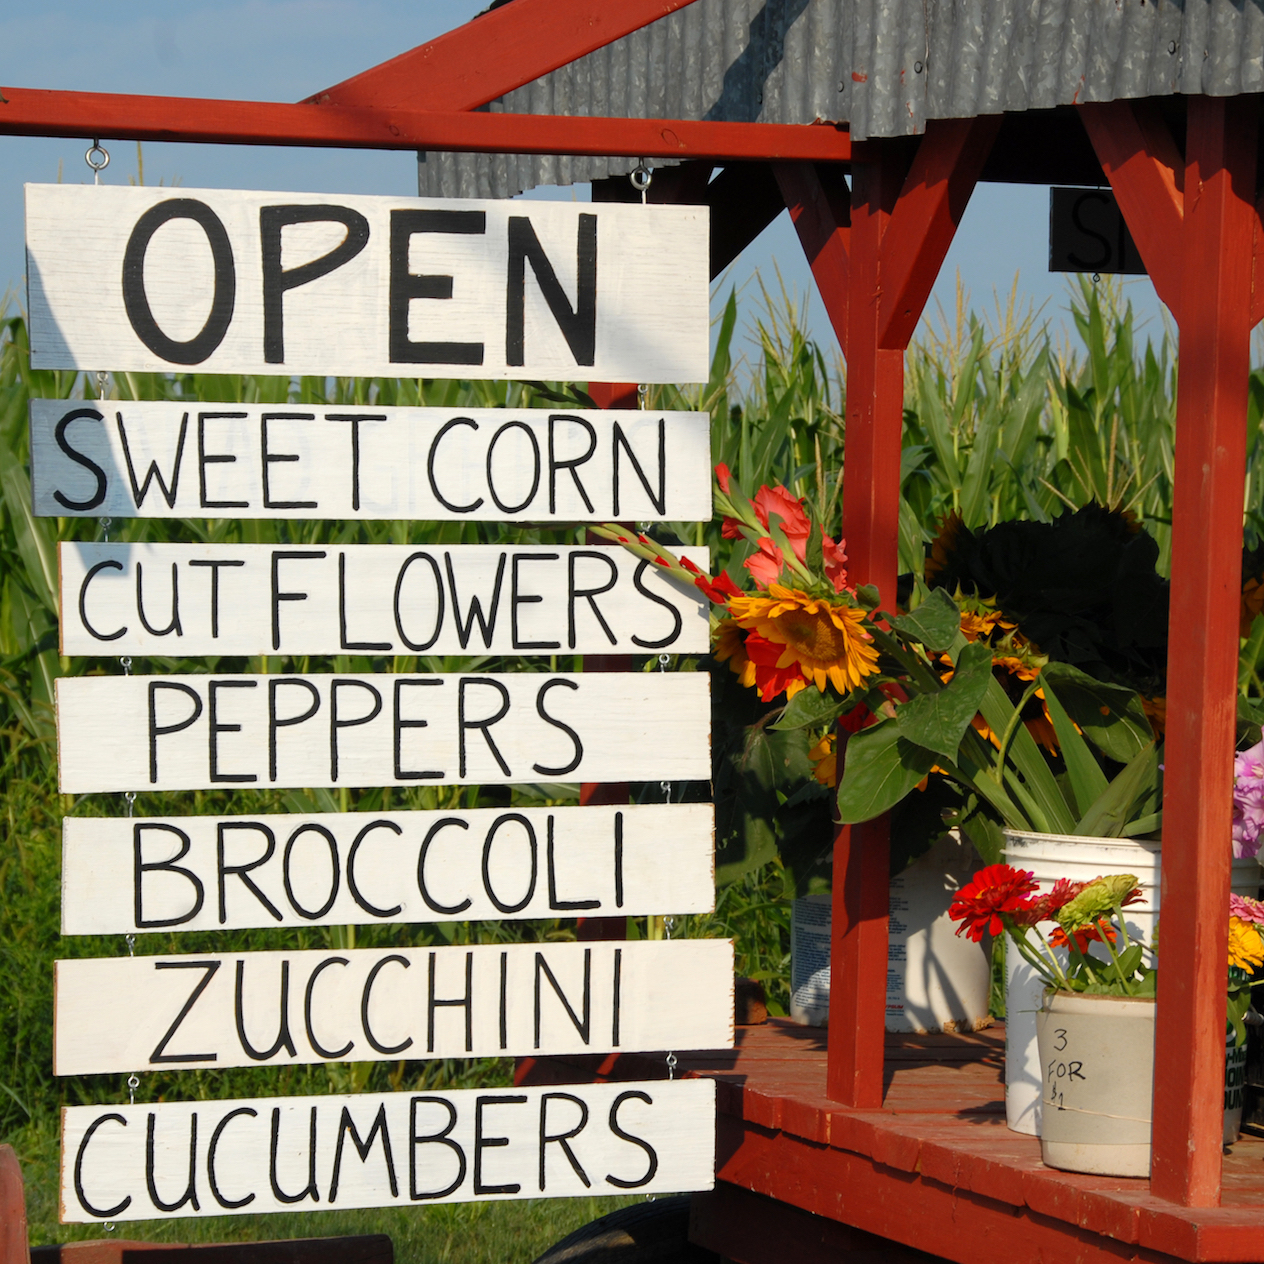 OPEN
SWEET CORN
CUT FLOWERS
PEPPERS
BROCCOLI
ZUCCHINI
CUCUMBERS
3
FOR
$1